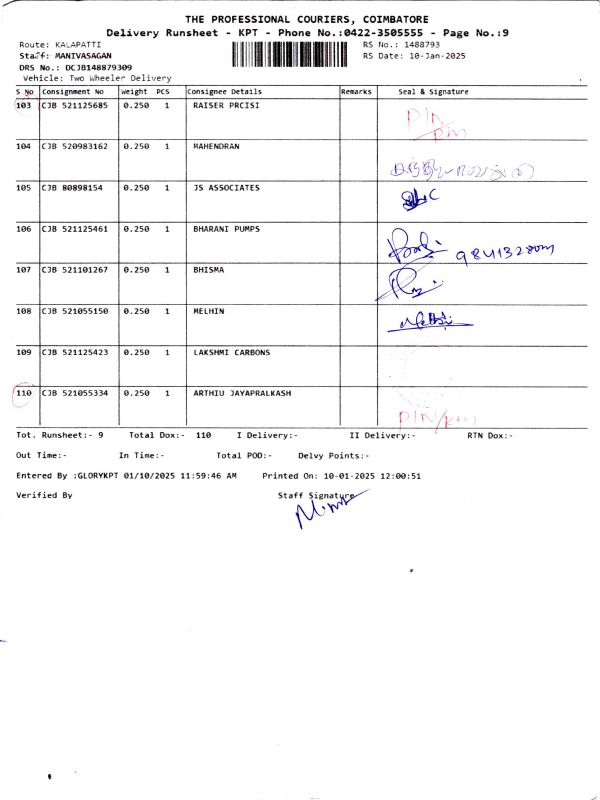 THE PROFESSIONAL COURIERS, COIMBATORE
Delivery Runsheet - KPT - Phone No.:0422-3505555 - Page No.:9
Route: KALAPATTI RS No.: 1488793
Staff: MANIVASAGAN RS Date: 10-Jan-2025
DRS No.: DCJB148879309
Vehicle: Two Wheeler Delivery
S No Consignment No Weight PCS Consignee Details Remarks Seal & Signature
103 CJB 521125685 0.250 1 RAISER PRCISI
104 CJB 520983162 0.250 1 MAHENDRAN
105 CJB 80898154 0.250 1 JS ASSOCIATES
106 CJB 521125461 0.250 1 BHARANI PUMPS
107 CJB 521101267 0.250 1 BHISMA
108 CJB 521055150 0.250 1 MELHIN
109 CJB 521125423 0.250 1 LAKSHMI CARBONS
110 CJB 521055334 0.250 1 ARTHIU JAYAPRALKASH
Tot. Runsheet:- 9 Total Dox:- 110 I Delivery:- II Delivery:- RTN Dox:-
Out Time:- In Time:- Total POD:- Delvy Points:-
Entered By :GLORYKPT 01/10/2025 11:59:46 AM Printed On: 10-01-2025 12:00:51
Verified By Staff Signature